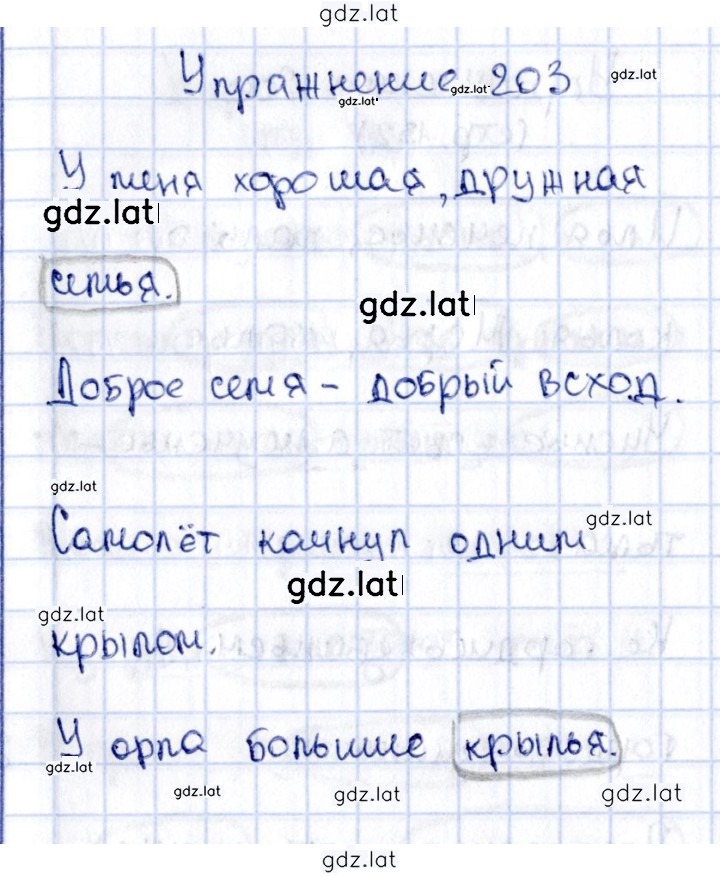 gdz.lat
Упражнение 203
gdz.lat
gdz.lat
gdz.lat
У меня хорошая, дружная
gdz.lat
семья.
gdz.lat
Доброе семя - добрый всход.
gdz.lat
Самолёт качнул одним
gdz.lat
gdz.lat
gdz.lat
крылом.
У орла большие крылья.
gdz.lat
gdz.lat
gdz.lat
gdz.lat
gdz.lat